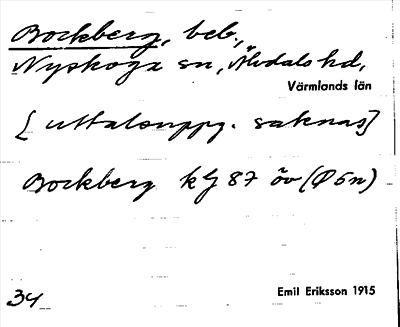 Bockberg, beb.,
Nyskoga sn, Älvdals hd,
Värmlands län
[uttalsuppg. saknas]
Bockberg kG 87 öv (Ø 6n)
34
Emil Eriksson 1915